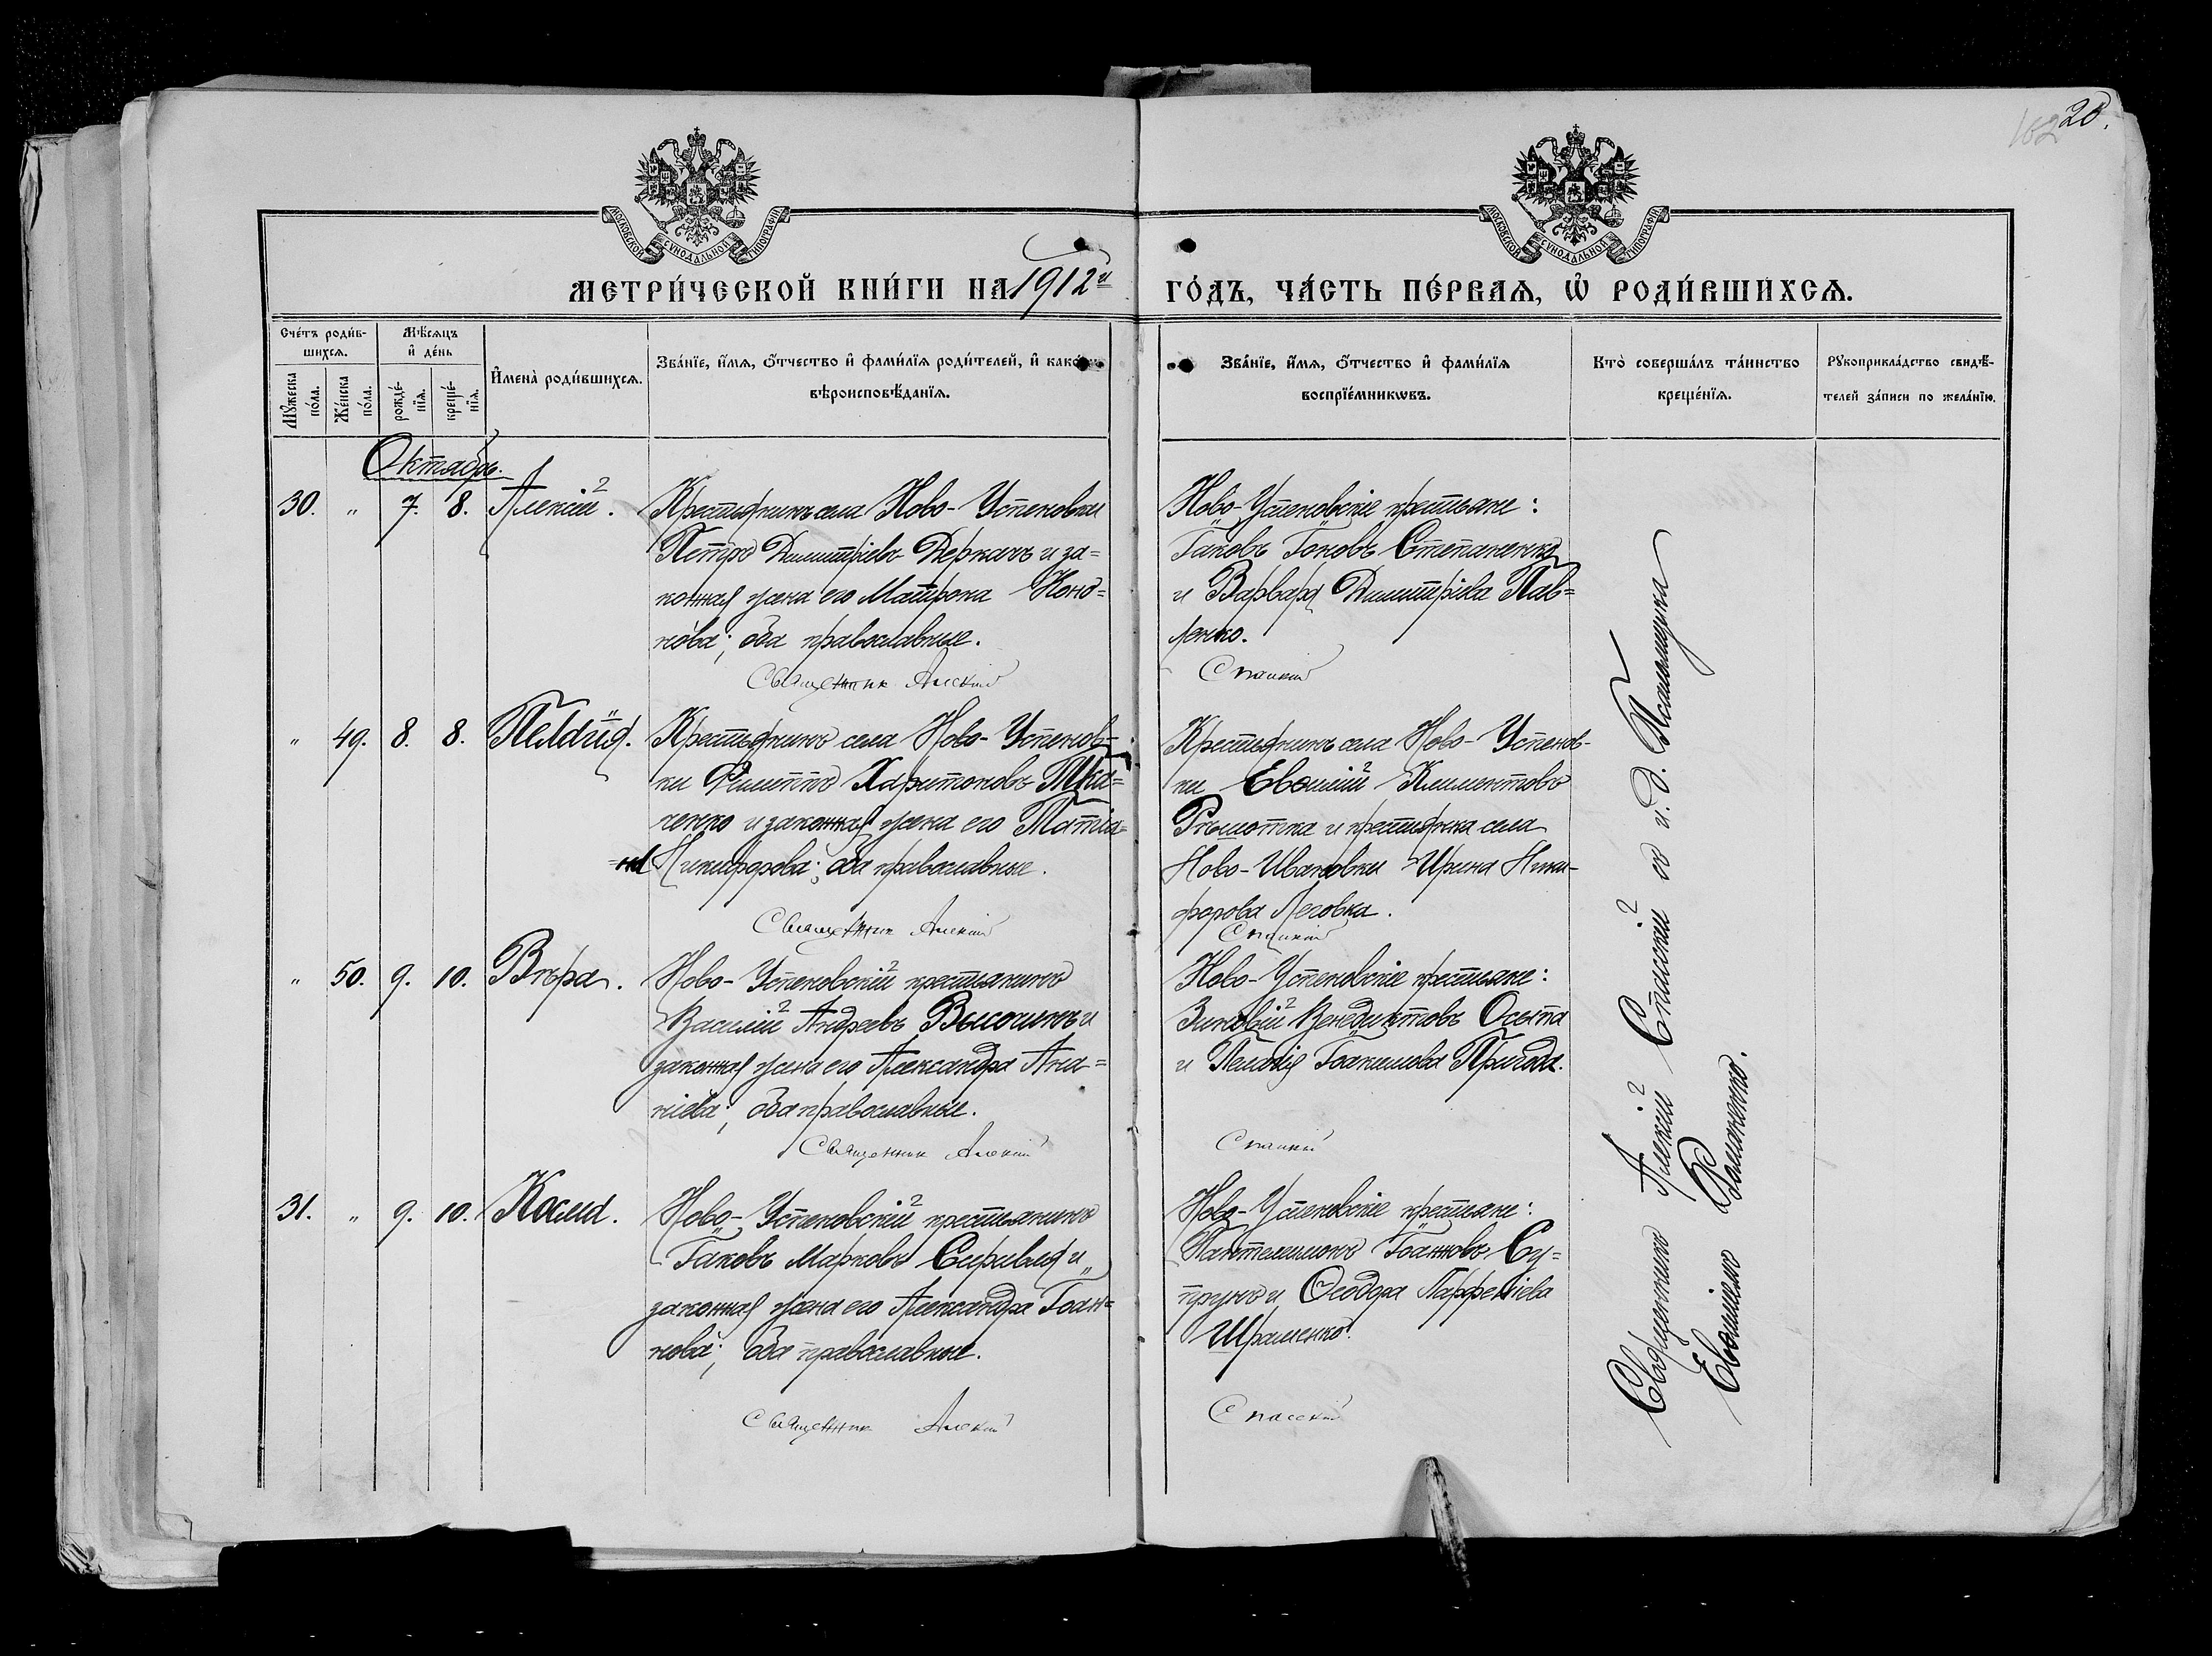 20.
МОСКОВСКОЙ СѴНОДАЛЬНОЙ ТИПОГРАФІИ
МОСКОВСКОЙ СѴНОДАЛЬНОЙ ТИПОГРАФІИ
МЕТРИ́ЧЕСКОЙ КНИ́ГИ НА 1912й ГО́ДЪ, ЧА́СТЬ ПЕ́РВАѦ, Ѡ҆ РОДИ́ВШИХСѦ.
Сче́тъ роди́в-
шихсѧ.
Мꙋ́жеска по́ла.
Же́нска по́ла.
Мѣ́сѧцъ
и҆ де́нь
рожде́-
нїѧ.
креще́-
нїѧ.
И҆мена̀ роди́вшихсѧ.
Зва́нїе, и҆́мѧ, ѻ҆́тчество и҆ фами́лїѧ роди́телей, и҆ како́гѡ
вѣроисповѣ́данїѧ.
Зва́нїе, и҆́мѧ, ѻ҆́тчество и҆ фами́лїѧ
воспрїе́мникѡвъ.
Кто̀ соверша́лъ та́инство
креще́нїѧ.
Рꙋкоприкла́дство свидѣ́-
телей за́писи по жела́нїю.
Октябрь.
30. " 7. 8. Алексій.
Крестьянинъ села Ново-Успеновки
Петръ Димитріевъ Деркачъ и за=
конная жена его Матрона Коно=
нова; оба православные.
Священник Алексий
Ново-Успеновскіе крестьяне:
Іаковъ Іоновъ Степаненко
и Варвара Димитріева Пав=
ленко.
Спасский
" 49. 8. 8. Пелагія.
Крестьянинъ села Ново-Успенов-
ки Филиппъ Харитоновъ Тка=
ченко и законная жена его Татіа=
=на Никифорова; оба православные.
Священник Алексий
Крестьянинъ села Ново-Успенов-
ки Евфимій Климентовъ
и крестьянка села
Ново-Ивановки Ирина Ники-
форова Леговка.
Спасский
" 50. 9. 10. Вѣра.
Ново-Успеновскій крестьянинъ
Василій Андреевъ Высочинъ и
законная жена его Александра Ана=
ніева; оба православные.
Священник Алексий
Ново-Успеновскіе крестьяне:
Зиновій Венедиктовъ Осыпа
и Пелагія Іоакимова Пригода.
Спасский
31. " 9. 10. Косма.
Ново-Успеновскій крестьянинъ
Іаковъ Марковъ Сиравля и
законная жена его Александра Іоан=
нова; оба православные.
Священник Алексий
Ново-Успеновскіе крестьяне:
Пантелеимонъ Іоанновъ Су=
прунъ и Ѳеодора Парфеніева
Шраменко.
Спасский
Священникъ Алексій Спасскій съ и. д. Псаломщика
Евфиміемъ Романенко.